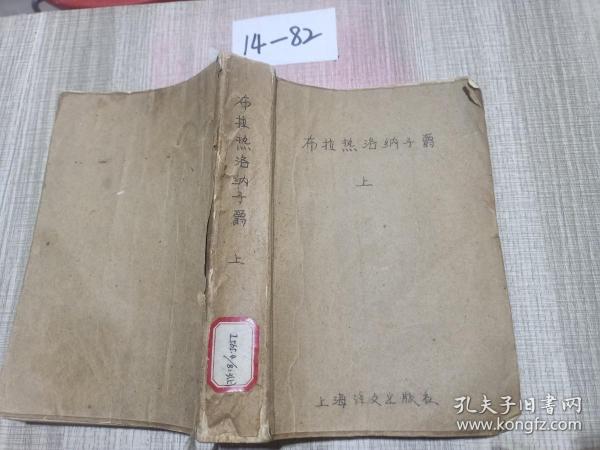 14-82
布拉热洛纳子爵 上
布拉热洛纳子爵
上
上海译文出版社
孔夫子旧书网
www.kongfz.com